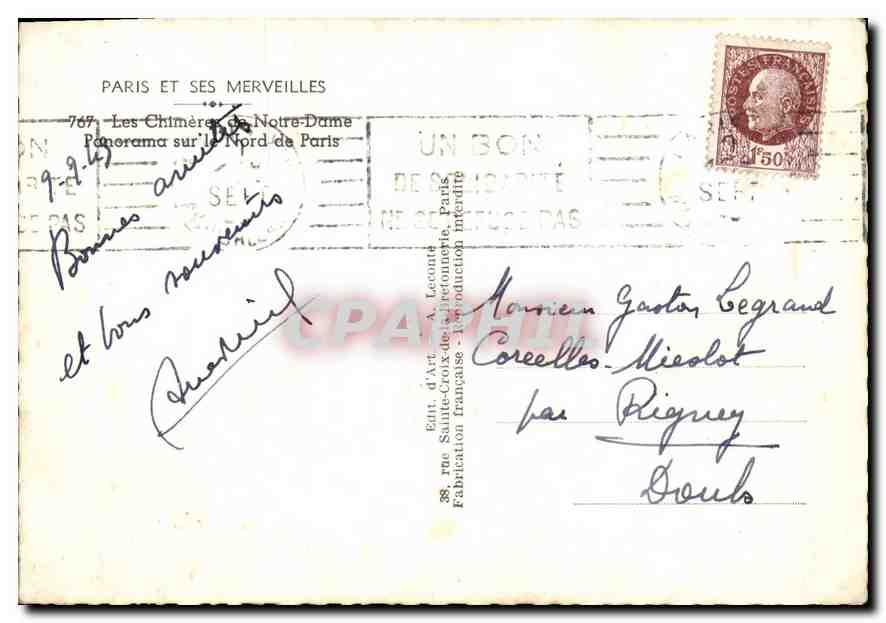 PARIS ET SES MERVEILLES
767. Les Chimères de Notre-Dame
Panorama sur le Nord de Paris
UN BON
DE SOLIDARITÉ
NE SE REFUSE PAS
SEPT
POSTES FRANÇAISES
1F50
Bonnes amitiés
et bons souvenirs
Edit. d'Art. - A. Leconte
38, rue Sainte-Croix-de-la-Bretonnerie, Paris
Fabrication française - Reproduction interdite
Monsieur Gaston Legrand
Corcelles-Mieslot
par Rigney
Doubs
CPAPHIL